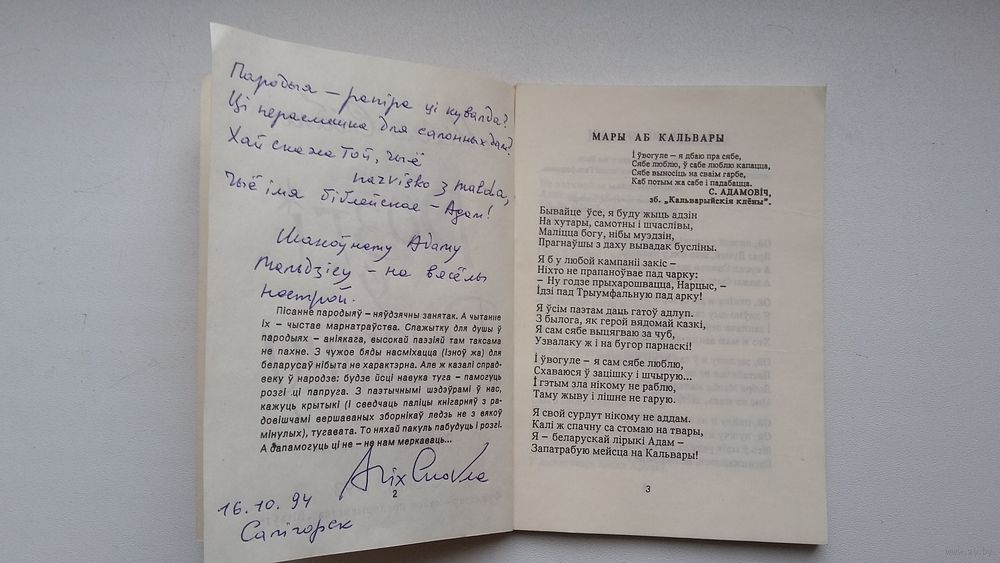 Пародыя – рапіра ці кувалда?
Ці перасмешка для салонных дам?
Хай скажа той, чыё
назвішка з malda,
Чыё імя біблейскае – Адам!
Шаноўнаму Адаму
Мальдзісу – на вясёлы
настрой.
Пісанне пародыяў – няўдзячны занятак. А чытанне
іх – чыстае марнатраўства. Спажытку для душы ў
пародыях – аніякага, высокай паэзіяй там таксама
не пахне. З чужое бяды насміхацца (ізноў жа) для
беларусаў нібыта не характэрна. Але ж казалі спрад-
веку ў народзе: будзе йсці навука туга – памогуць
розгі ці папруга. З паэтычнымі шэдэўрамі ў нас,
кажуць крытыкі (і сведчаць паліцы кнігарняў з ра-
довішчамі вершаваных зборнікаў ледзь не з вякоў
мінулых), тугавата. То няхай пакуль пабудуць і розгі.
А дапамогуць ці не – не нам меркаваць...
2
16.10.94
Салігорск
МАРЫ АБ КАЛЬВАРЫ
І ўвогуле – я дбаю пра сябе,
Сябе люблю, ў сабе люблю капацца,
Сябе выносіць на сваім гарбе,
Каб потым жа сабе і падабацца.
С. АДАМОВІЧ,
зб. „Кальварыйскія клёны".
Бывайце ўсе, я буду жыць адзін
На хутары, самотны і шчаслівы,
Маліцца богу, нібы муэдзін,
Прагнаўшы з даху вывадак бусліны.
Я б у любой кампаніі закіс –
Ніхто не прапаноўвае пад чарку:
– Ну годзе прыхарошвацца, Нарцыс, –
Ідзі пад Трыумфальную пад арку!
Я ўсім паэтам даць гатоў адлуп.
З былога, як герой вядомай казкі,
Я сам сябе выцягваю за чуб,
Узвалаку ж і на бугор парнаскі!
І ўвогуле – я сам сябе люблю,
Схаваюся ў зацішку і шчырую...
І гэтым зла нікому не раблю,
Таму жыву і лішне не гарую.
Я свой сурдут нікому не аддам.
Калі ж спачну са стомаю на твары,
Я – беларускай лірыкі Адам –
Запатрабую мейсца на Кальвары!
3
www.ay.by